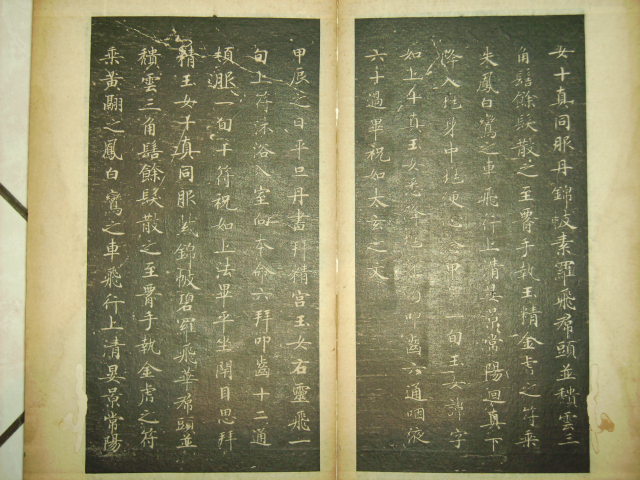 女十真同服丹錦帔素羅飛帬頭並頹雲三
角髻餘髮散之至腰手執玉精金虎之符乘
朱鳳白鸞之車飛行上清晏景常陽迴真下
降入拙身中拙便心念甲一旬玉女諱字
如上十真玉女悉降叩齒六通咽液
六十過畢祝如太玄之文
甲辰之日平旦丹書拜精宮玉女右靈飛一
旬上符沐浴入室向本命六拜叩齒十二通
頓服一旬十符祝如上法畢平坐閉目思拜
精玉女十真同服紫錦帔碧羅飛華帬頭並
頹雲三角髻餘髮散之至腰手執金虎之符
乘黃翮之鳳白鸞之車飛行上清晏景常陽